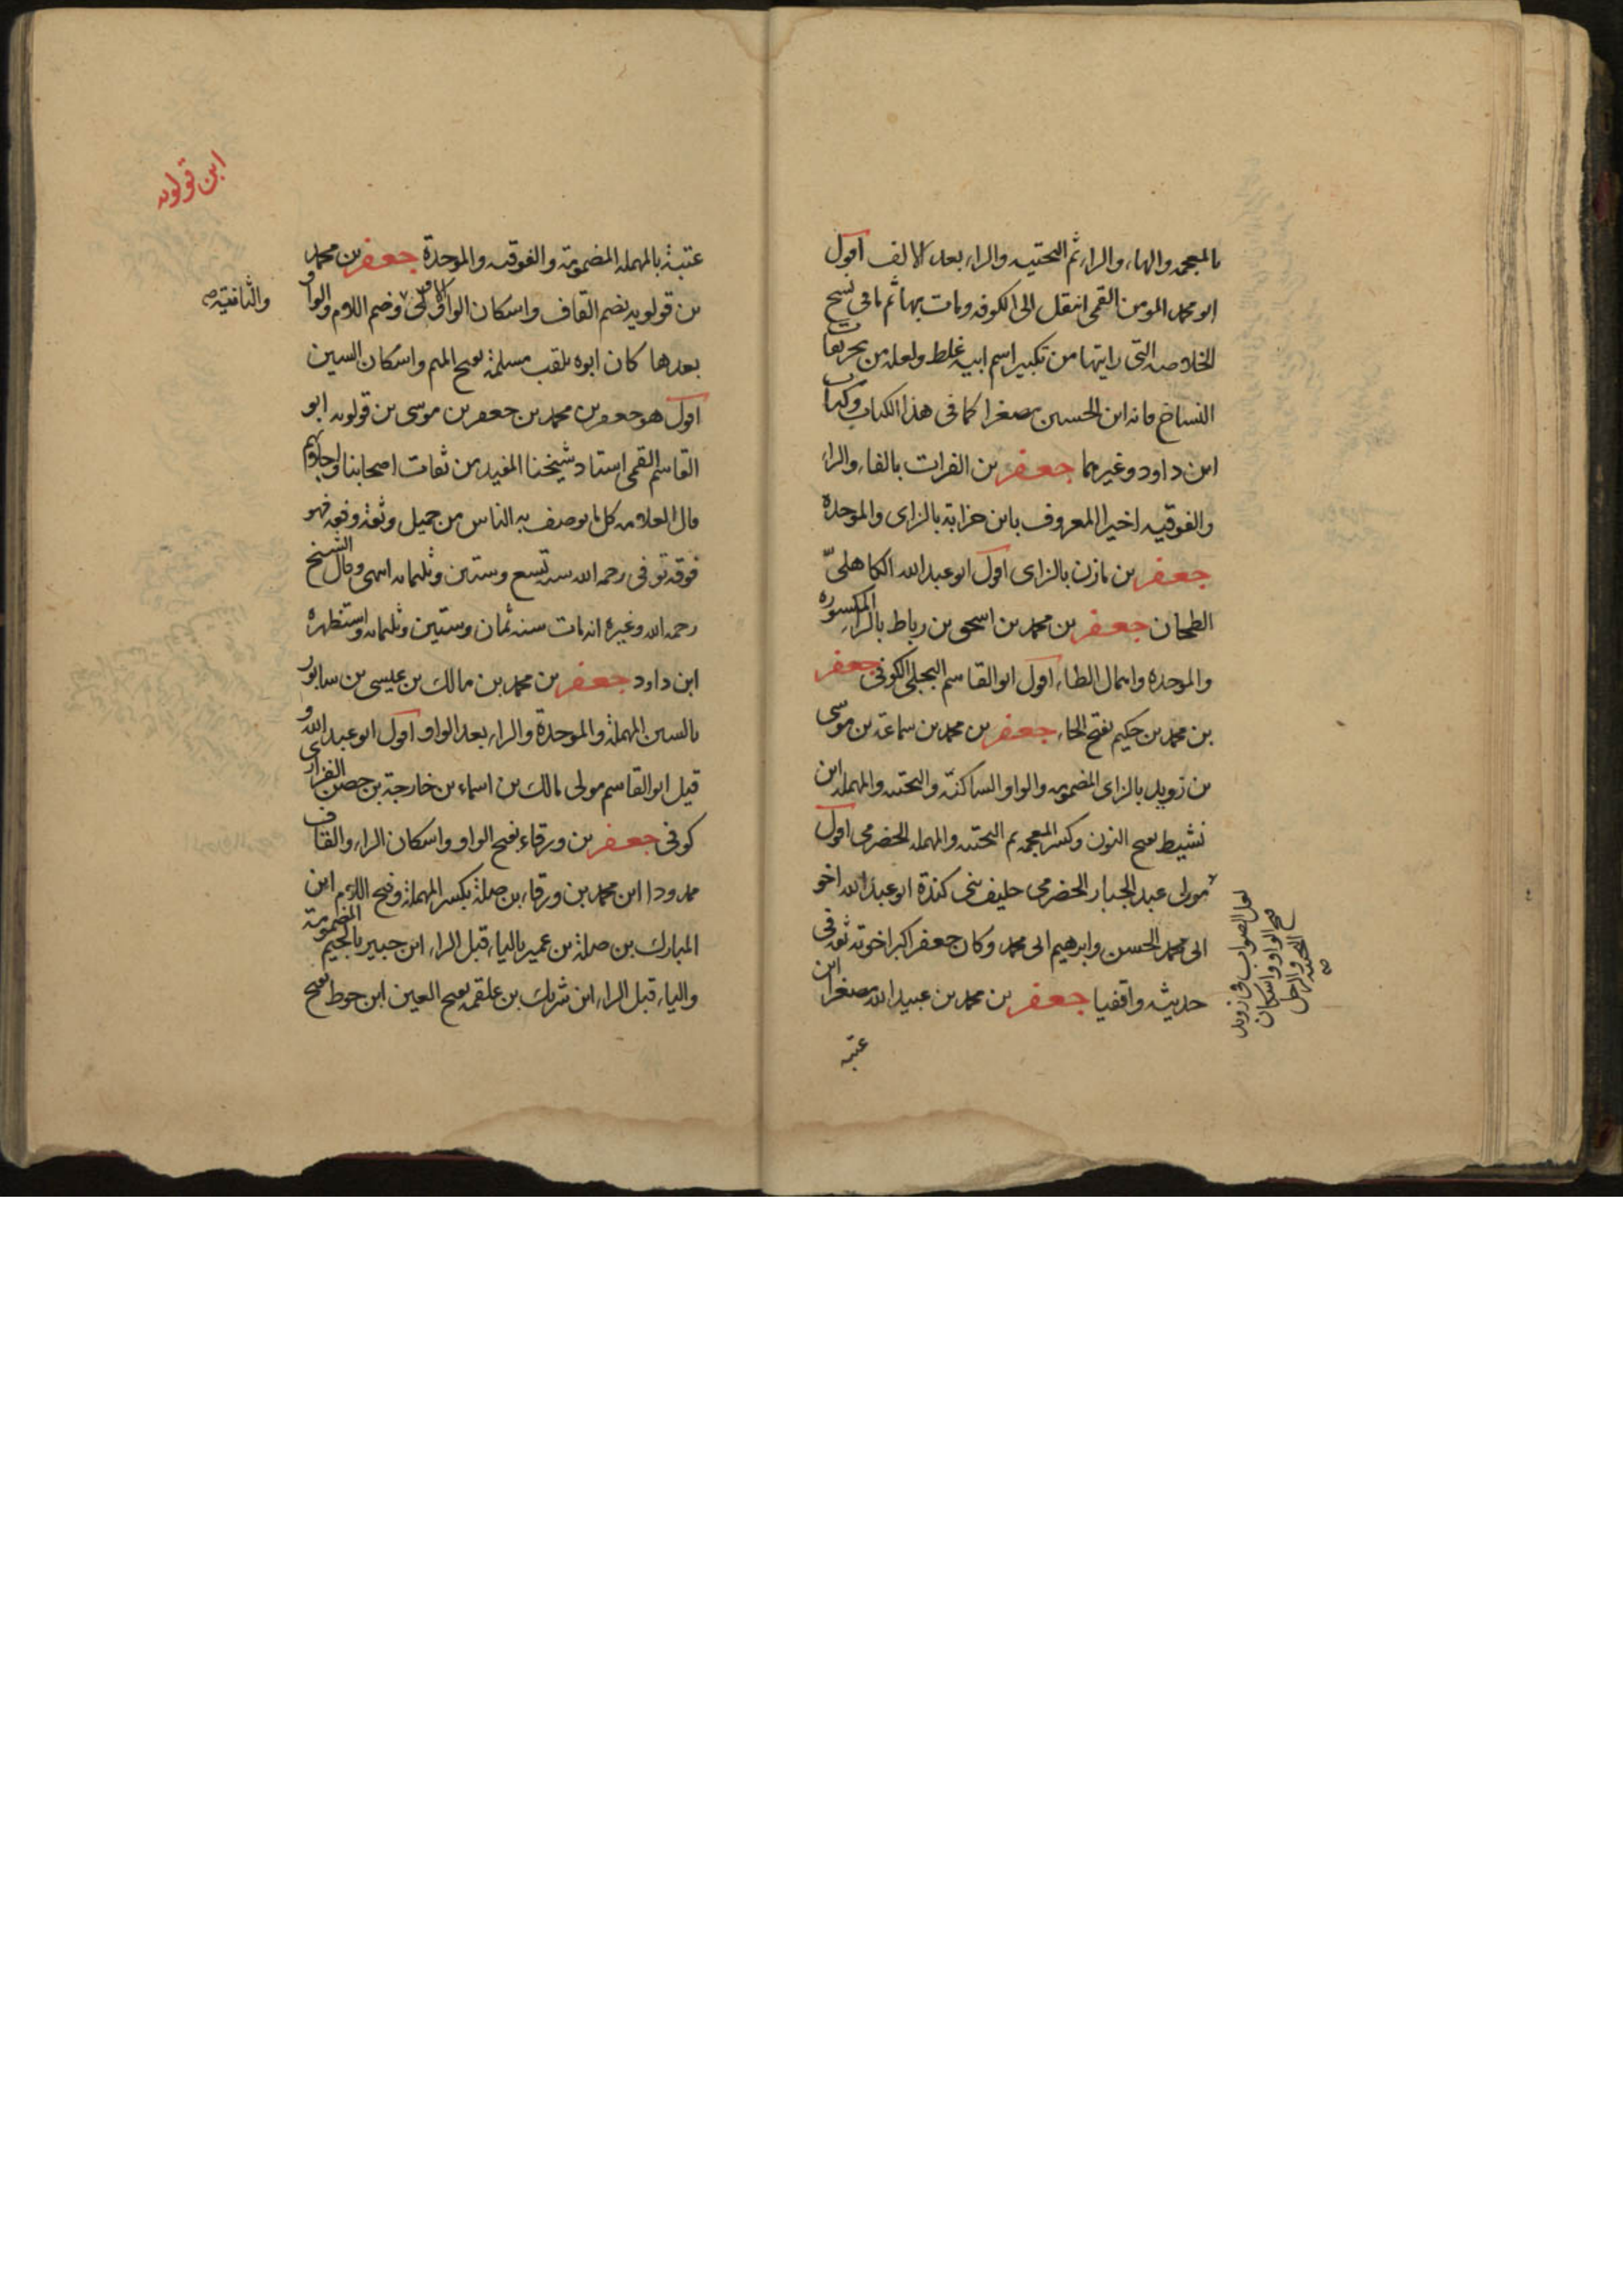 بالمعجمه والهاء والراء ثم التحتيه والراء بعد الالف اقول
ابو محمد المومن القمى انتقل الى الكوفه ومات بها ثم ما فى نسخ
الخلاصه التى رايتها من تكبير اسم ابيه غلط ولعله من تحريفات
النساخ فانه ابن الحسين مصغرا كما فى هذا الكتاب وكتاب
ابن داود وغيرهما جعفر بن الفرات بالفاء والراء
والفوقيه اخيرا المعروف بابن حزابة بالزاى والموحده
جعفر بن مازن بالزاى اقول ابو عبد الله الكاهلىّ
الطحان جعفر بن محمد بن اسحق بن رباط بالراء المكسوره
والموحده واهمال الطاء اقول ابو القاسم البجلى الكوفى جعفر
بن محمد بن حكيم بفتح الحاء جعفر بن محمد بن سماعة بن موسى
بن زويد بالزاى المضمومه والواو الساكنة والتحتيه والمهمله ابن
نشيط بفتح النون وكسر المعجمه ثم التحتيه والمهمله الحضرمى اقول
مولى عبد الجبار الحضرمى حليف بنى كندة ابو عبد الله اخو
ابى محمد الحسن وابرهيم ابى محمد وكان جعفر اكبر اخوته ثقه فى
حديثه واقفيا جعفر بن محمد بن عبيد الله مصغرا ابن
عتبه
لعل الصواب فى زويد
فتح الواو واسكان
التحتيه
عتبة بالمهمله المضمومة والفوقيه والموحدة جعفر بن محمد
بن قولويه بضم القاف واسكان الواو الاولى وضم اللام والواو
والثافتيه صح
بعدها كان ابوه يلقب مسلمة بفتح الميم واسكان السين
اقول هو جعفر بن محمد بن جعفر بن موسى بن قولويه ابو
القاسم القمى استاد شيخنا المفيد من ثقات اصحابنا واجلائهم
قال العلامه كل ما يوصف به الناس من جميل وثقة وفقه فهو
فوقه توفى رحمه الله سنه تسع وستين وثلثمايه انتهى وقال الشيخ
رحمه الله وغيره انه مات سنه ثمان وستين وثلثمايه واستظهره
ابن داود جعفر بن محمد بن مالك بن عيسى بن سابور
بالسين المهملة والموحدة والراء بعد الواو اقول ابو عبد الله و
قيل ابو القاسم مولى مالك بن اسماء بن خارجة بن حصن الفزارى
كوفى جعفر بن ورقاء بفتح الواو واسكان الراء والقاف
ممدودا ابن محمد بن ورقاء بن صلة بكسر المهملة وفتح اللام ابن
المبارك بن صلة بن عمير بالياء قبل الراء ابن جبير بالجيم المضمومة
والياء قبل الراء ابن شريك بن علقمه بفتح العين ابن حوط بفتح
ابن قولويه